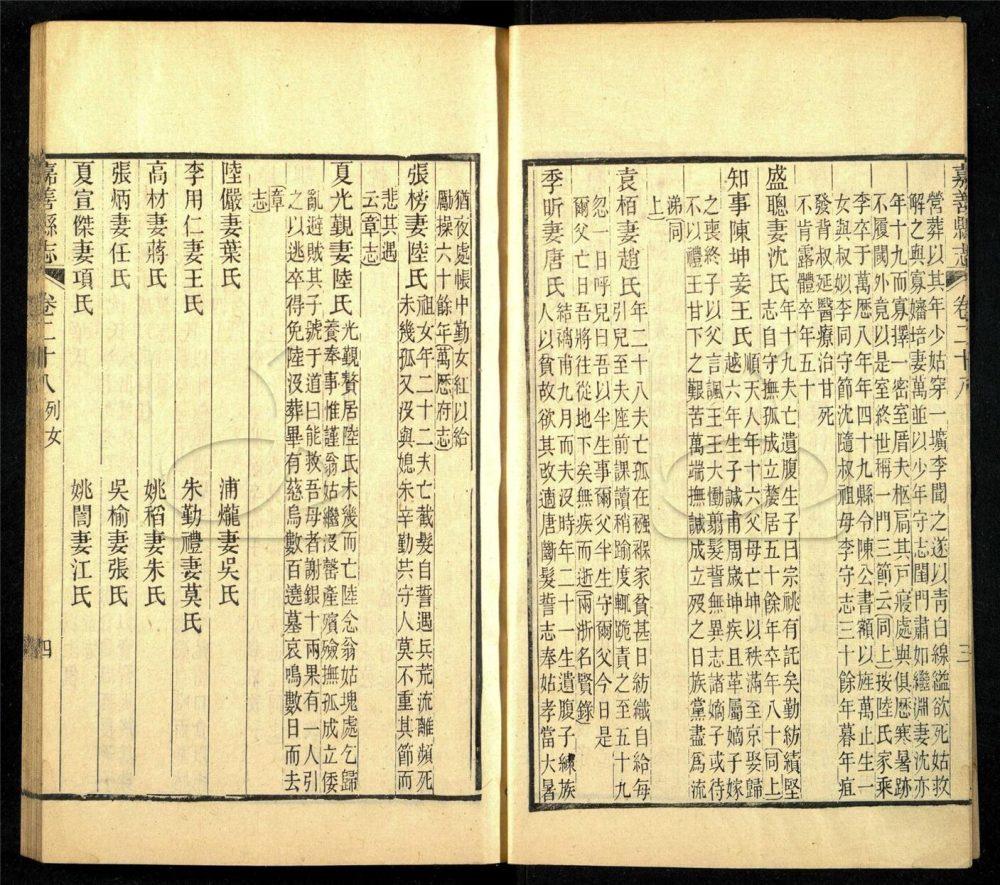 嘉善縣志 卷二十八 三
營葬以其年少姑穿一壙李聞之遂以青白線縊欲死姑救
解之與寡嬸培妻萬並以少年守志閨門肅如繼淵妻沈亦
年十九而寡擇一密室厝夫柩扃其戸寢處與俱歷寒暑跡
不履閾外竟以是室終世稱一門三節云同上按陸氏家乘
李卒于萬厯八年年四十九縣令陳公書額以旌萬止生一
女與叔姒李同守節沈隨叔祖母李守志三十餘年暮年疽
發背叔延醫療治甘死
不肯露體卒年五十
盛聰妻沈氏年十九夫亡遺腹生子曰宗祧有託矣勤紡績堅
志自守撫孤成立嫠居五十餘年卒年八十同上
知事陳坤妾王氏順天人年十六父母亡坤以秩滿至京娶歸
越六年生子諴甫周歲坤疾且革屬嫡子嫁
之喪終子以父言諷王王大慟翦髮誓無異志諸嫡子或待
不以禮王甘下之艱苦萬端撫諴成立歿之日族黨盡爲流
涕同
上
袁栢妻趙氏年二十八夫亡孤在襁褓家貧甚日紡織自給每
引兒至夫座前課讀稍踰度輒跪責之至五十九
忽一日呼兒曰吾以半生事爾父半生守爾父今日是
爾父亡日吾將往從地下矣無疾而逝兩浙名賢錄
季昕妻唐氏結褵甫九月而夫沒時年二十一生遺腹子練族
人以貧故欲其改適唐斷髮誓志奉姑孝當大暑
猶夜處帳中勤女紅以給
勵操六十餘年萬厯府志
張榜妻陸氏祖女年二十二夫亡截髮自誓遇兵荒流離頻死
未幾孤又沒與媳朱辛勤共守人莫不重其節而
悲其遇
云章志
夏光觀妻陸氏光觀贅居陸氏未幾而亡陸念翁姑塊處乞歸
養奉事惟謹翁姑繼沒罄產殯殮撫孤成立倭
亂避賊其子號于道曰能救吾母者謝銀十兩果有一人引
之以逃卒得免陸沒葬畢有慈烏數百遶墓哀鳴數日而去
章
志
陸儼妻葉氏 浦爖妻吳氏
李用仁妻王氏 朱勤禮妻莫氏
高材妻蔣氏 姚稻妻朱氏
張炳妻任氏 吳榆妻張氏
夏宣傑妻項氏 姚誾妻江氏
嘉善縣志 卷二十八 列女 四